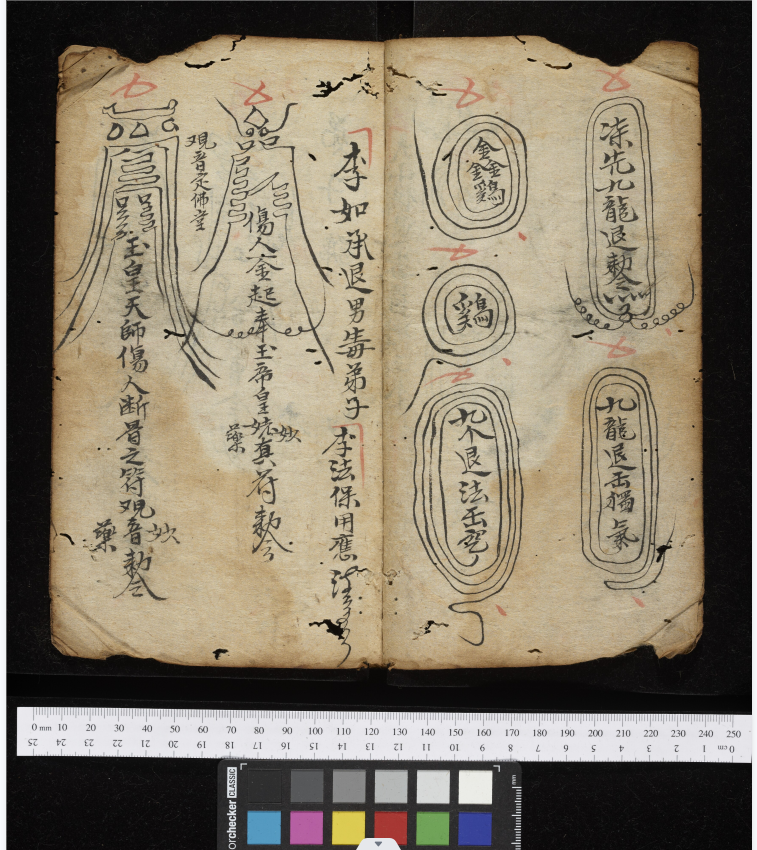 凍先九龍退勅令
九龍退缶獨氣
鑫鑫鷄
鷄
九个退法缶
李如承退男毒弟子
李法保用應
傷人金起奉玉帝皇
真符勅令
妙
藥
觀音定佛堂
玉皇天師傷人断骨之符觀音勅令
妙
藥
0 mm 10 20 30 40 50 60 70 80 90 100 110 120 130 140 150 160 170 180 190 200 210 220 230 240 250
25 24 23 22 21 20 19 18 17 16 15 14 13 12 11 10 9 8 7 6 5 4 3 2 1 cm 0
orchecker CLASSIC
mm